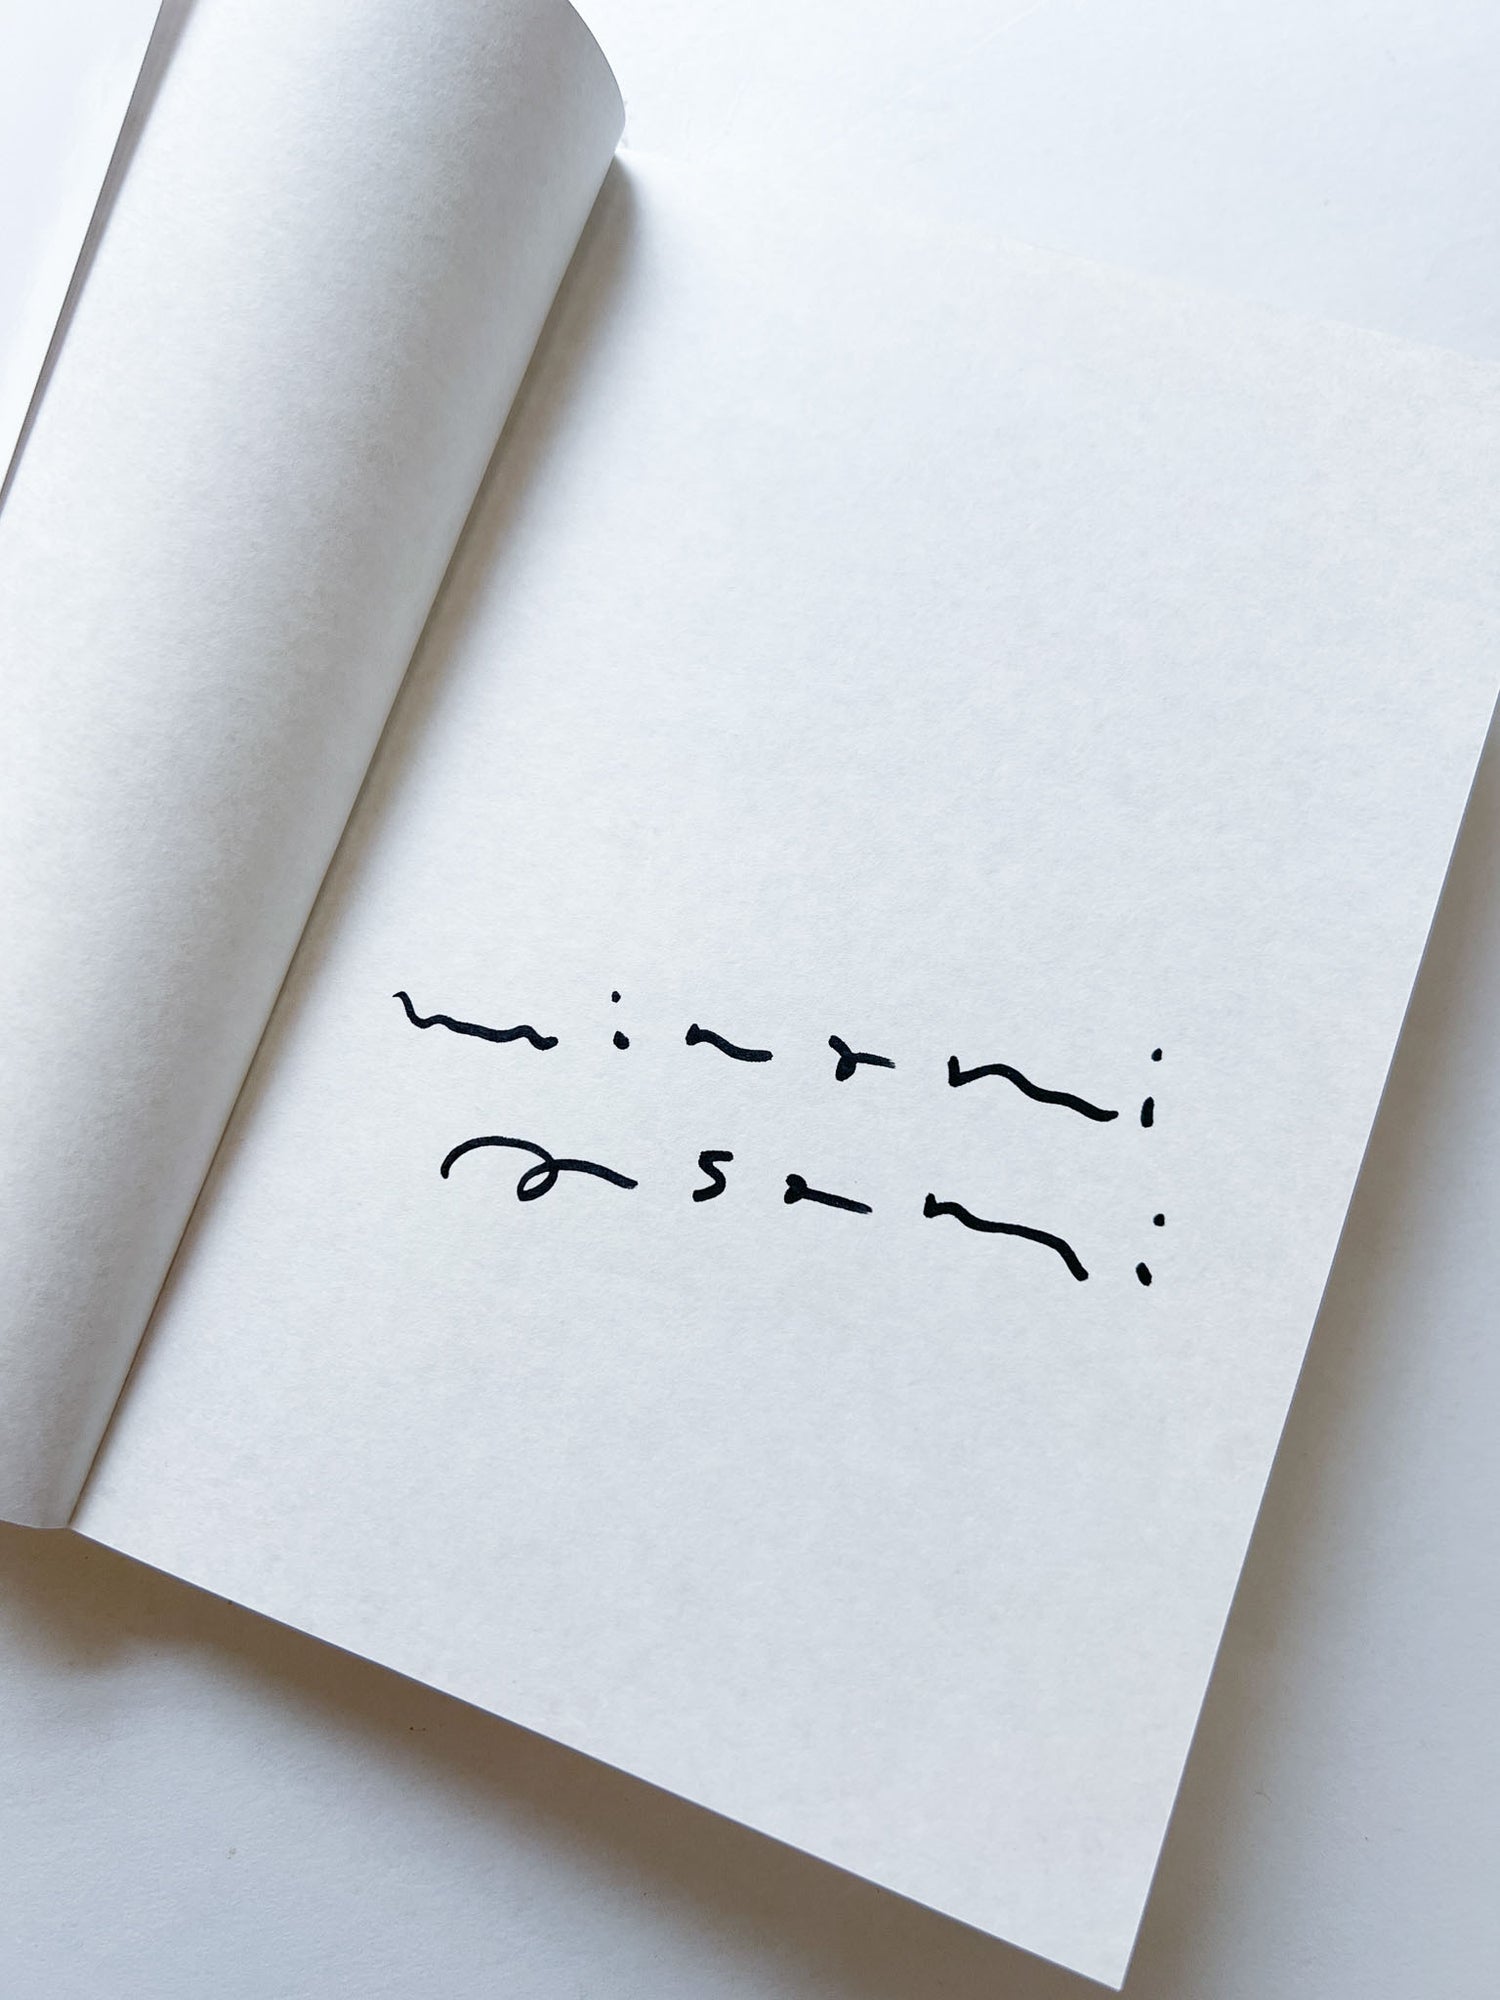 minami
asami